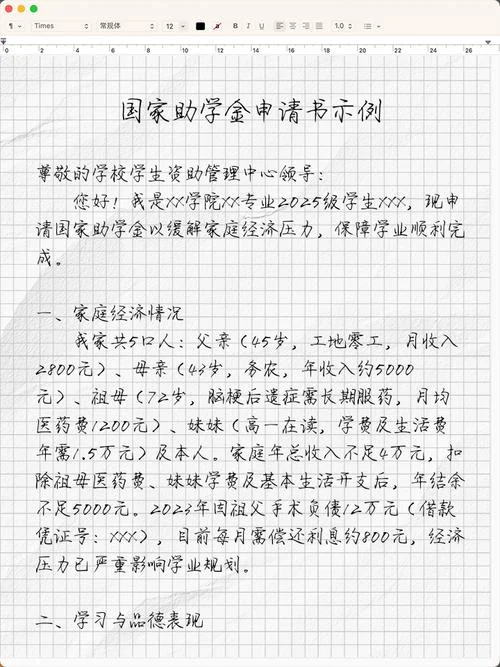 Times 常规体 12 B I U 1.0
0 2 4 6 8 10 12 14 16 18 20 22 24 26
国家助学金申请书示例
尊敬的学校学生资助管理中心领导：
您好！我是XX学院XX专业2025级学生XXX，现申
请国家助学金以缓解家庭经济压力，保障学业顺利完
成。
一、家庭经济情况
我家共5口人：父亲（45岁，工地零工，月收入
2800元）、母亲（43岁，务农，年收入约5000
元）、祖母（72岁，脑梗后遗症需长期服药，月均
医药费1200元）、妹妹（高一在读，学费及生活费
年需1.5万元）及本人。家庭年总收入不足4万元，扣
除祖母医药费、妹妹学费及基本生活开支后，年结余
不足5000元。2023年因祖父手术负债12万元（借款
凭证号：XXX），目前每月需偿还利息约800元，经济
压力已严重影响学业规划。
二、学习与品德表现